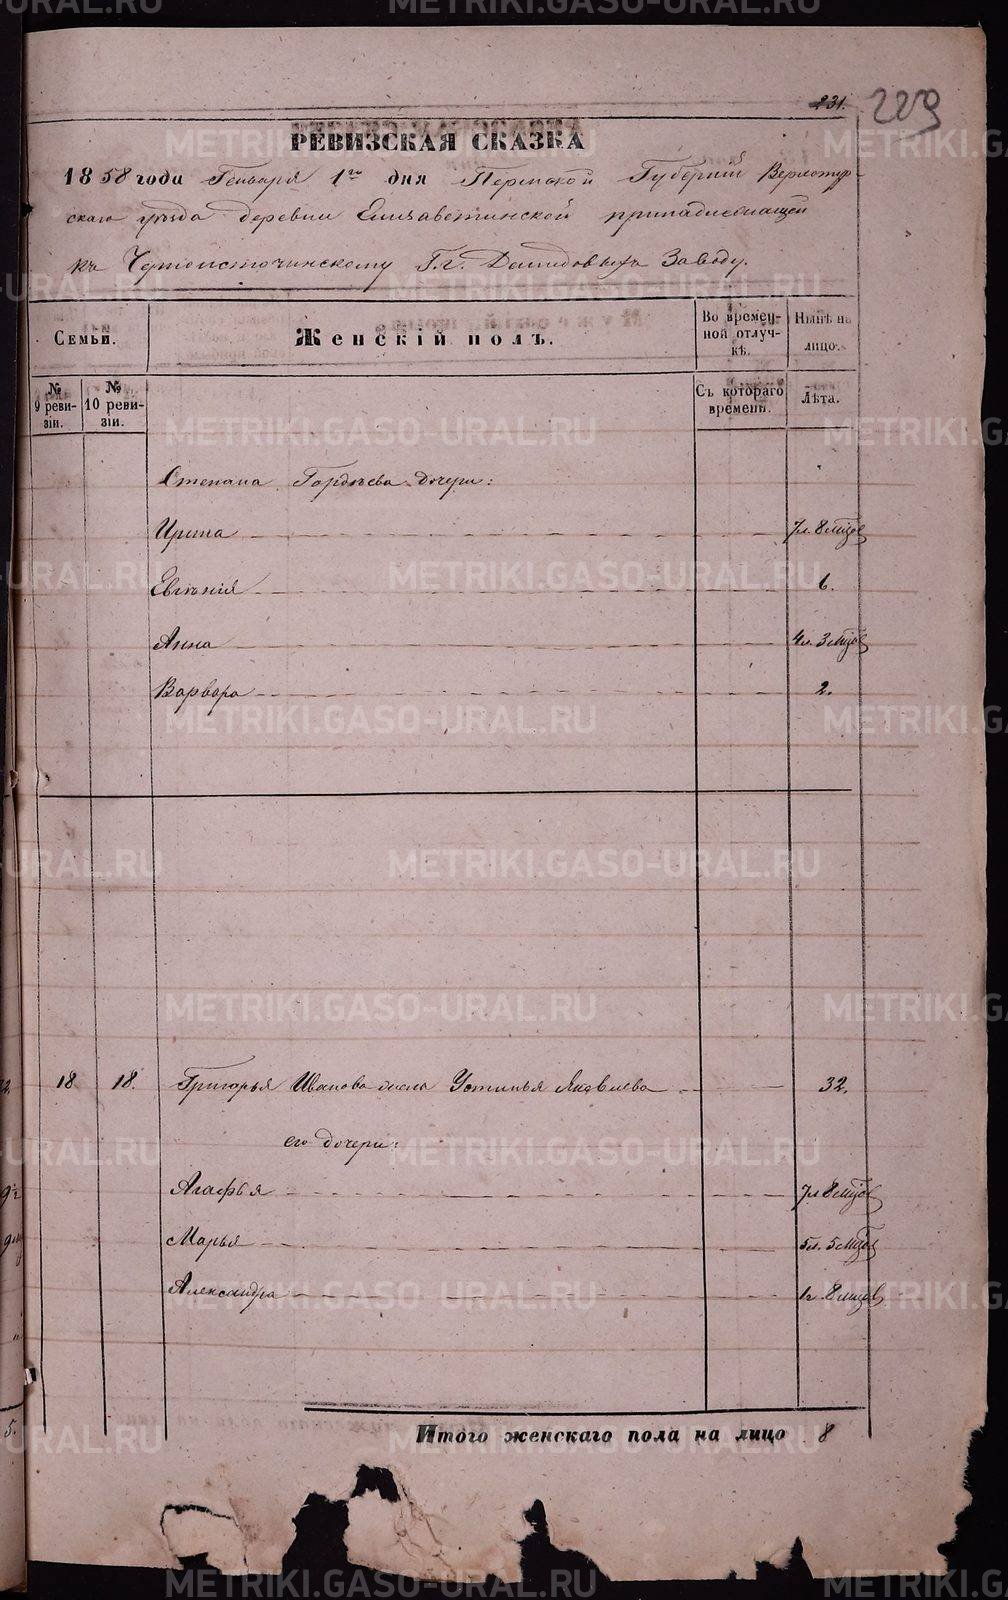 231. 229
РЕВИЗСКАЯ СКАЗКА
1858 года Генваря 1го дня Пермской Губернiи Верхотур-
скаго уѣзда деревни Елизаветинской принадлежащей
къ Черноисточинскому Г.г. Демидовыхъ Заводу.
Семьи.
Женскій полъ.
Во времен-
ной отлуч-
кѣ.
Нынѣ на
лицо.
№
9 реви-
зіи.
№
10 реви-
зіи.
Съ котораго
времени.
Лѣта.
Степана Гордѣева дочери:
Ирина 7л. 8 мѣцов
Евгенія 6.
Анна 4л. 3 мѣцов
Варвара 2.
18 18. Григорья Иванова жена Устинья Яковлева 32.
его дочери:
Агафья 7л 8 мѣцов
Марья 5л. 5 мѣцов
Александра 1г. 8 мѣцов
Итого женскаго пола на лицо 8
METRIKI.GASO-URAL.RU